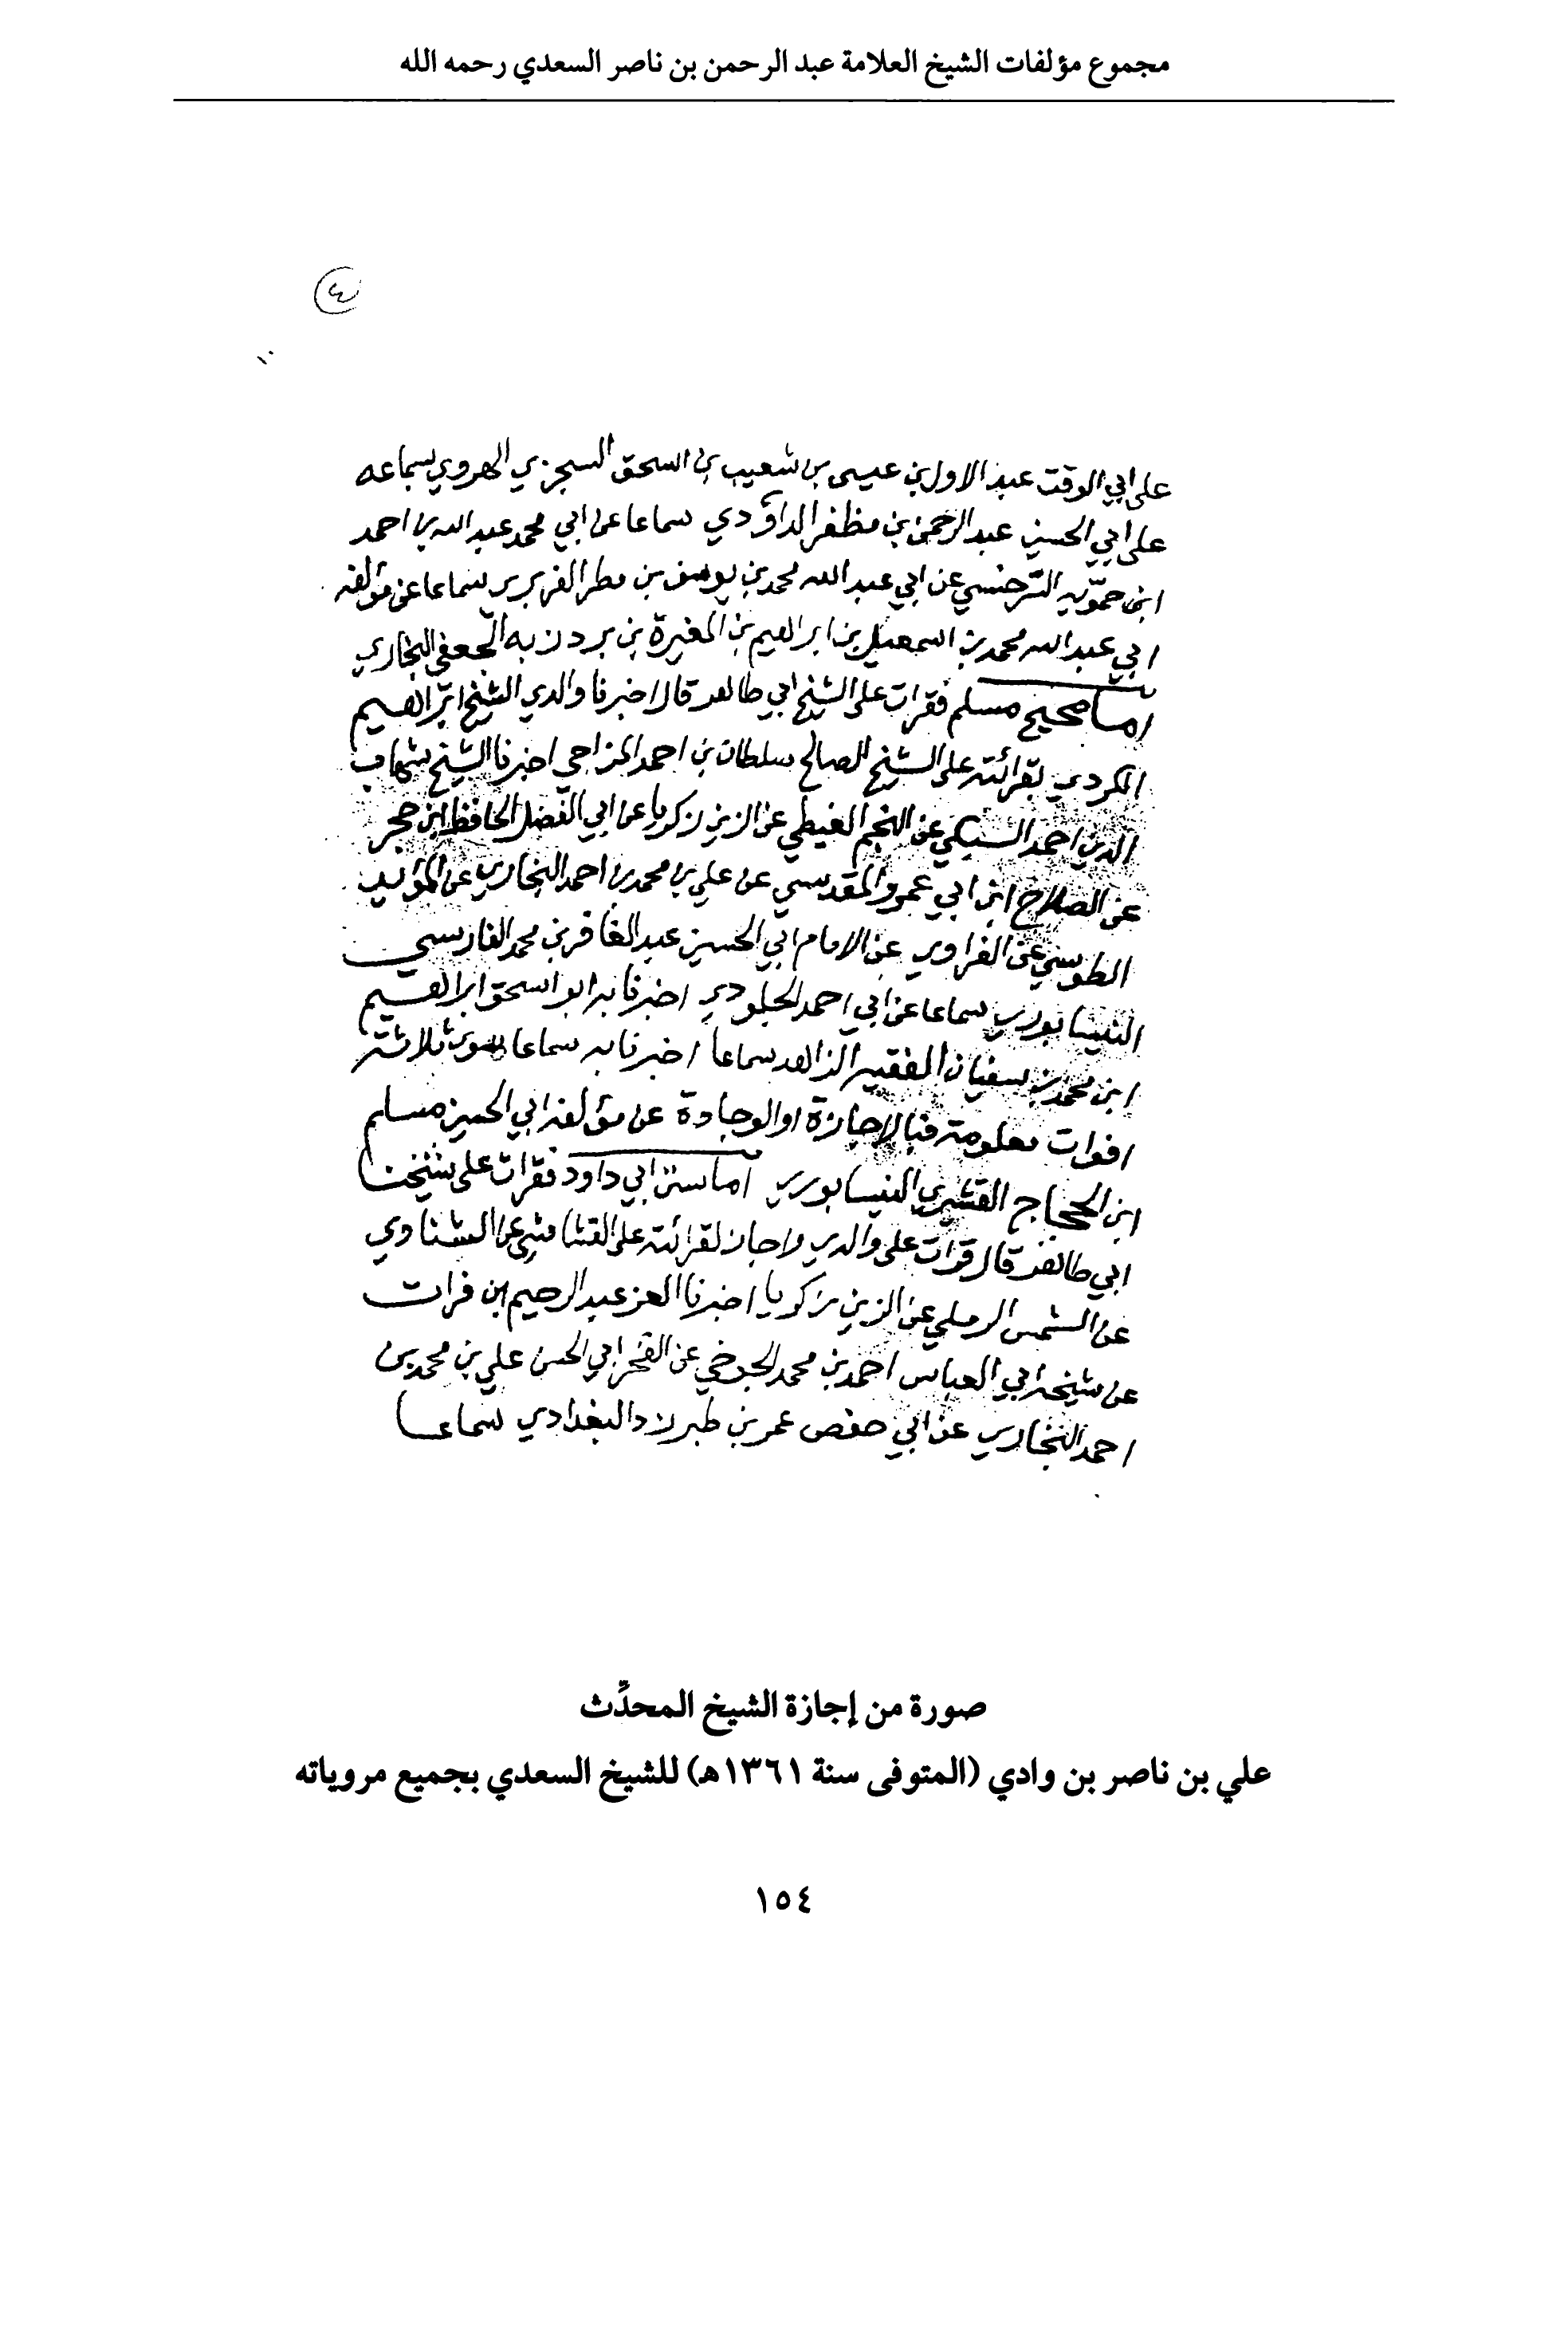 مجموع مؤلفات الشيخ العلامة عبد الرحمن بن ناصر السعدي رحمه الله
٤
على ابي الوقت عبد الاول بن عيسى بن شعيب بن اسحق السجزي الهروي بسماعه
على ابي الحسن عبد الرحمن بن مظفر الداؤدي سماعا عن ابي محمد عبد الله بن احمد
ابن حمويه السرخسي عن ابي عبد الله محمد بن يوسف بن مطر الفربري سماعا عن مؤلفه
ابي عبد الله محمد بن اسمعيل بن ابراهيم بن المغيرة بن بردزبه الجعفي البخاري
اما صحيح مسلم فقرات على الشيخ ابي طاهر قال اخبرنا والدي الشيخ ابراهيم
الكردي بقرائته على الشيخ الصالح سلطان بن احمد المزاحي اخبرنا الشيخ شهاب
الدين احمد السبكي عن النجم الغيطي عن الزين زكريا عن ابي الفضل الحافظ ابن حجر
عن الصلاح ابن ابي عمرو المقدسي عن علي بن محمد بن احمد البخاري عن المؤيد
الطوسي عن الفراوي عن الامام ابي الحسين عبد الغافر بن محمد الفارسي
النيسابوري سماعا عن ابي احمد الجلودي اخبرنا به ابو اسحق ابراهيم
ابن محمد بن سفيان الفقيه الزاهد سماعا اخبرنا به سماعا سوى ثلاثة
افوات معلومة فبالاجازة او الوجادة عن مؤلفه ابي الحسين مسلم
ابن الحجاج القشيري النيسابوري اما سنن ابي داود فقرات على شيخنا
ابي طاهر قال قرات على والدي واجاز لقرائته على القشاشي عن الشناوي
عن الشمس الرملي عن الزين زكريا اخبرنا العز عبد الرحيم ابن فرات
عن شيخه ابي العباس احمد بن محمد الجوخي عن الفخر ابي الحسن علي بن محمد بن
احمد البخاري عن ابي حفص عمر بن طبرزد البغدادي سماعا
صورة من إجازة الشيخ المحدِّث
علي بن ناصر بن وادي (المتوفى سنة ١٣٦١هـ) للشيخ السعدي بجميع مروياته
١٥٤